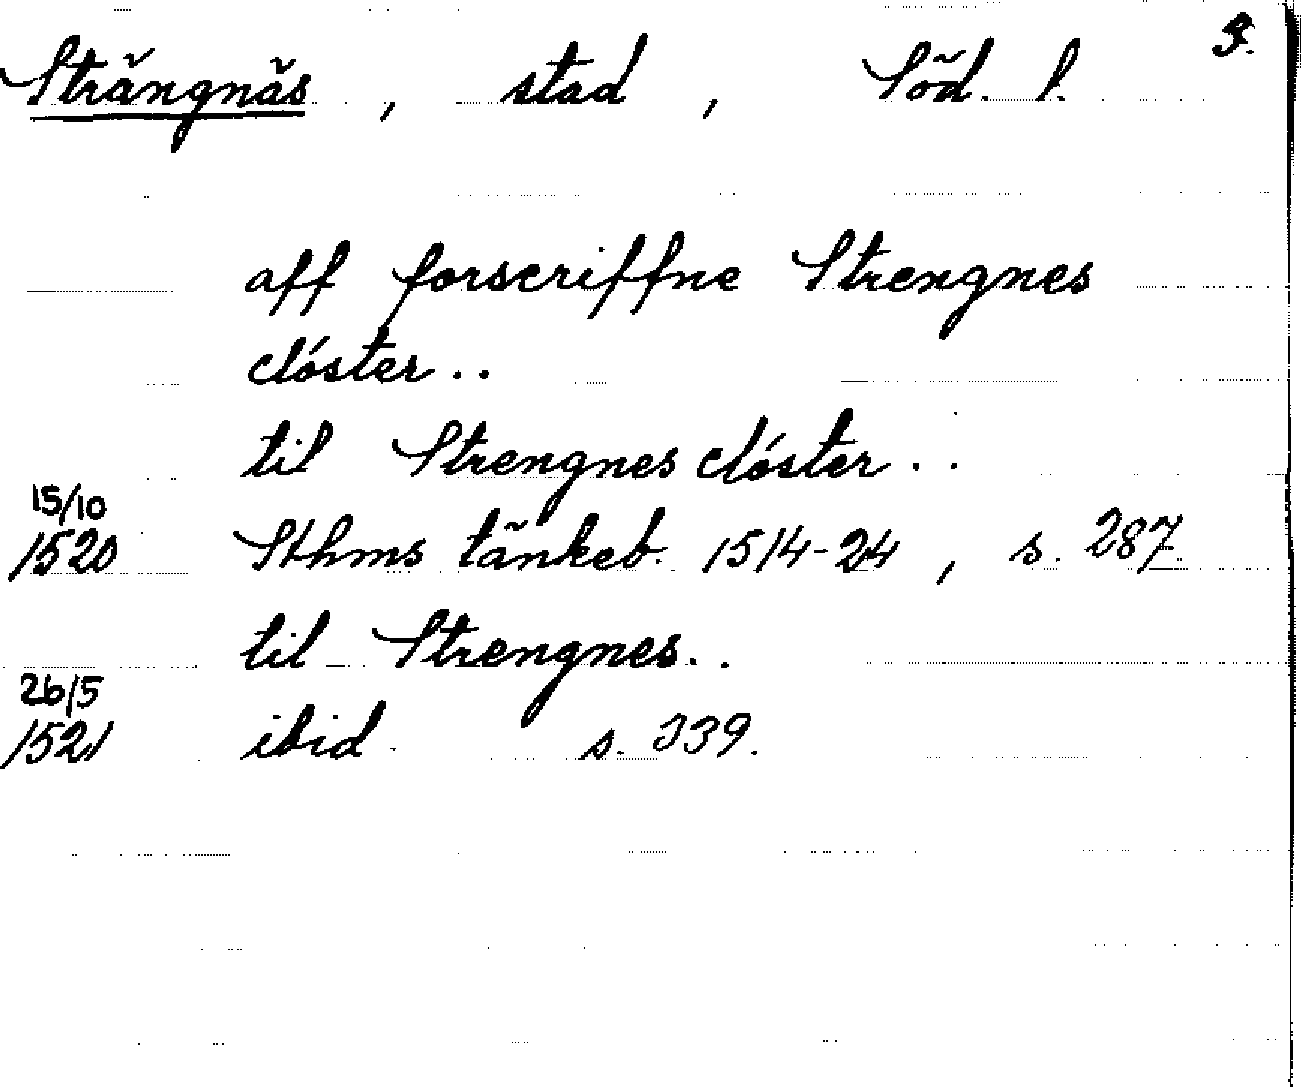 3.
Strängnäs, stad, Söd. l.
aff forscriffne Strengnes
clóster..
til Strengnes clóster..
15/10
1520 Sthms tänkeb. 1514-24, s. 287.
til Strengnes..
26/5
1521 ibid. s. 339.